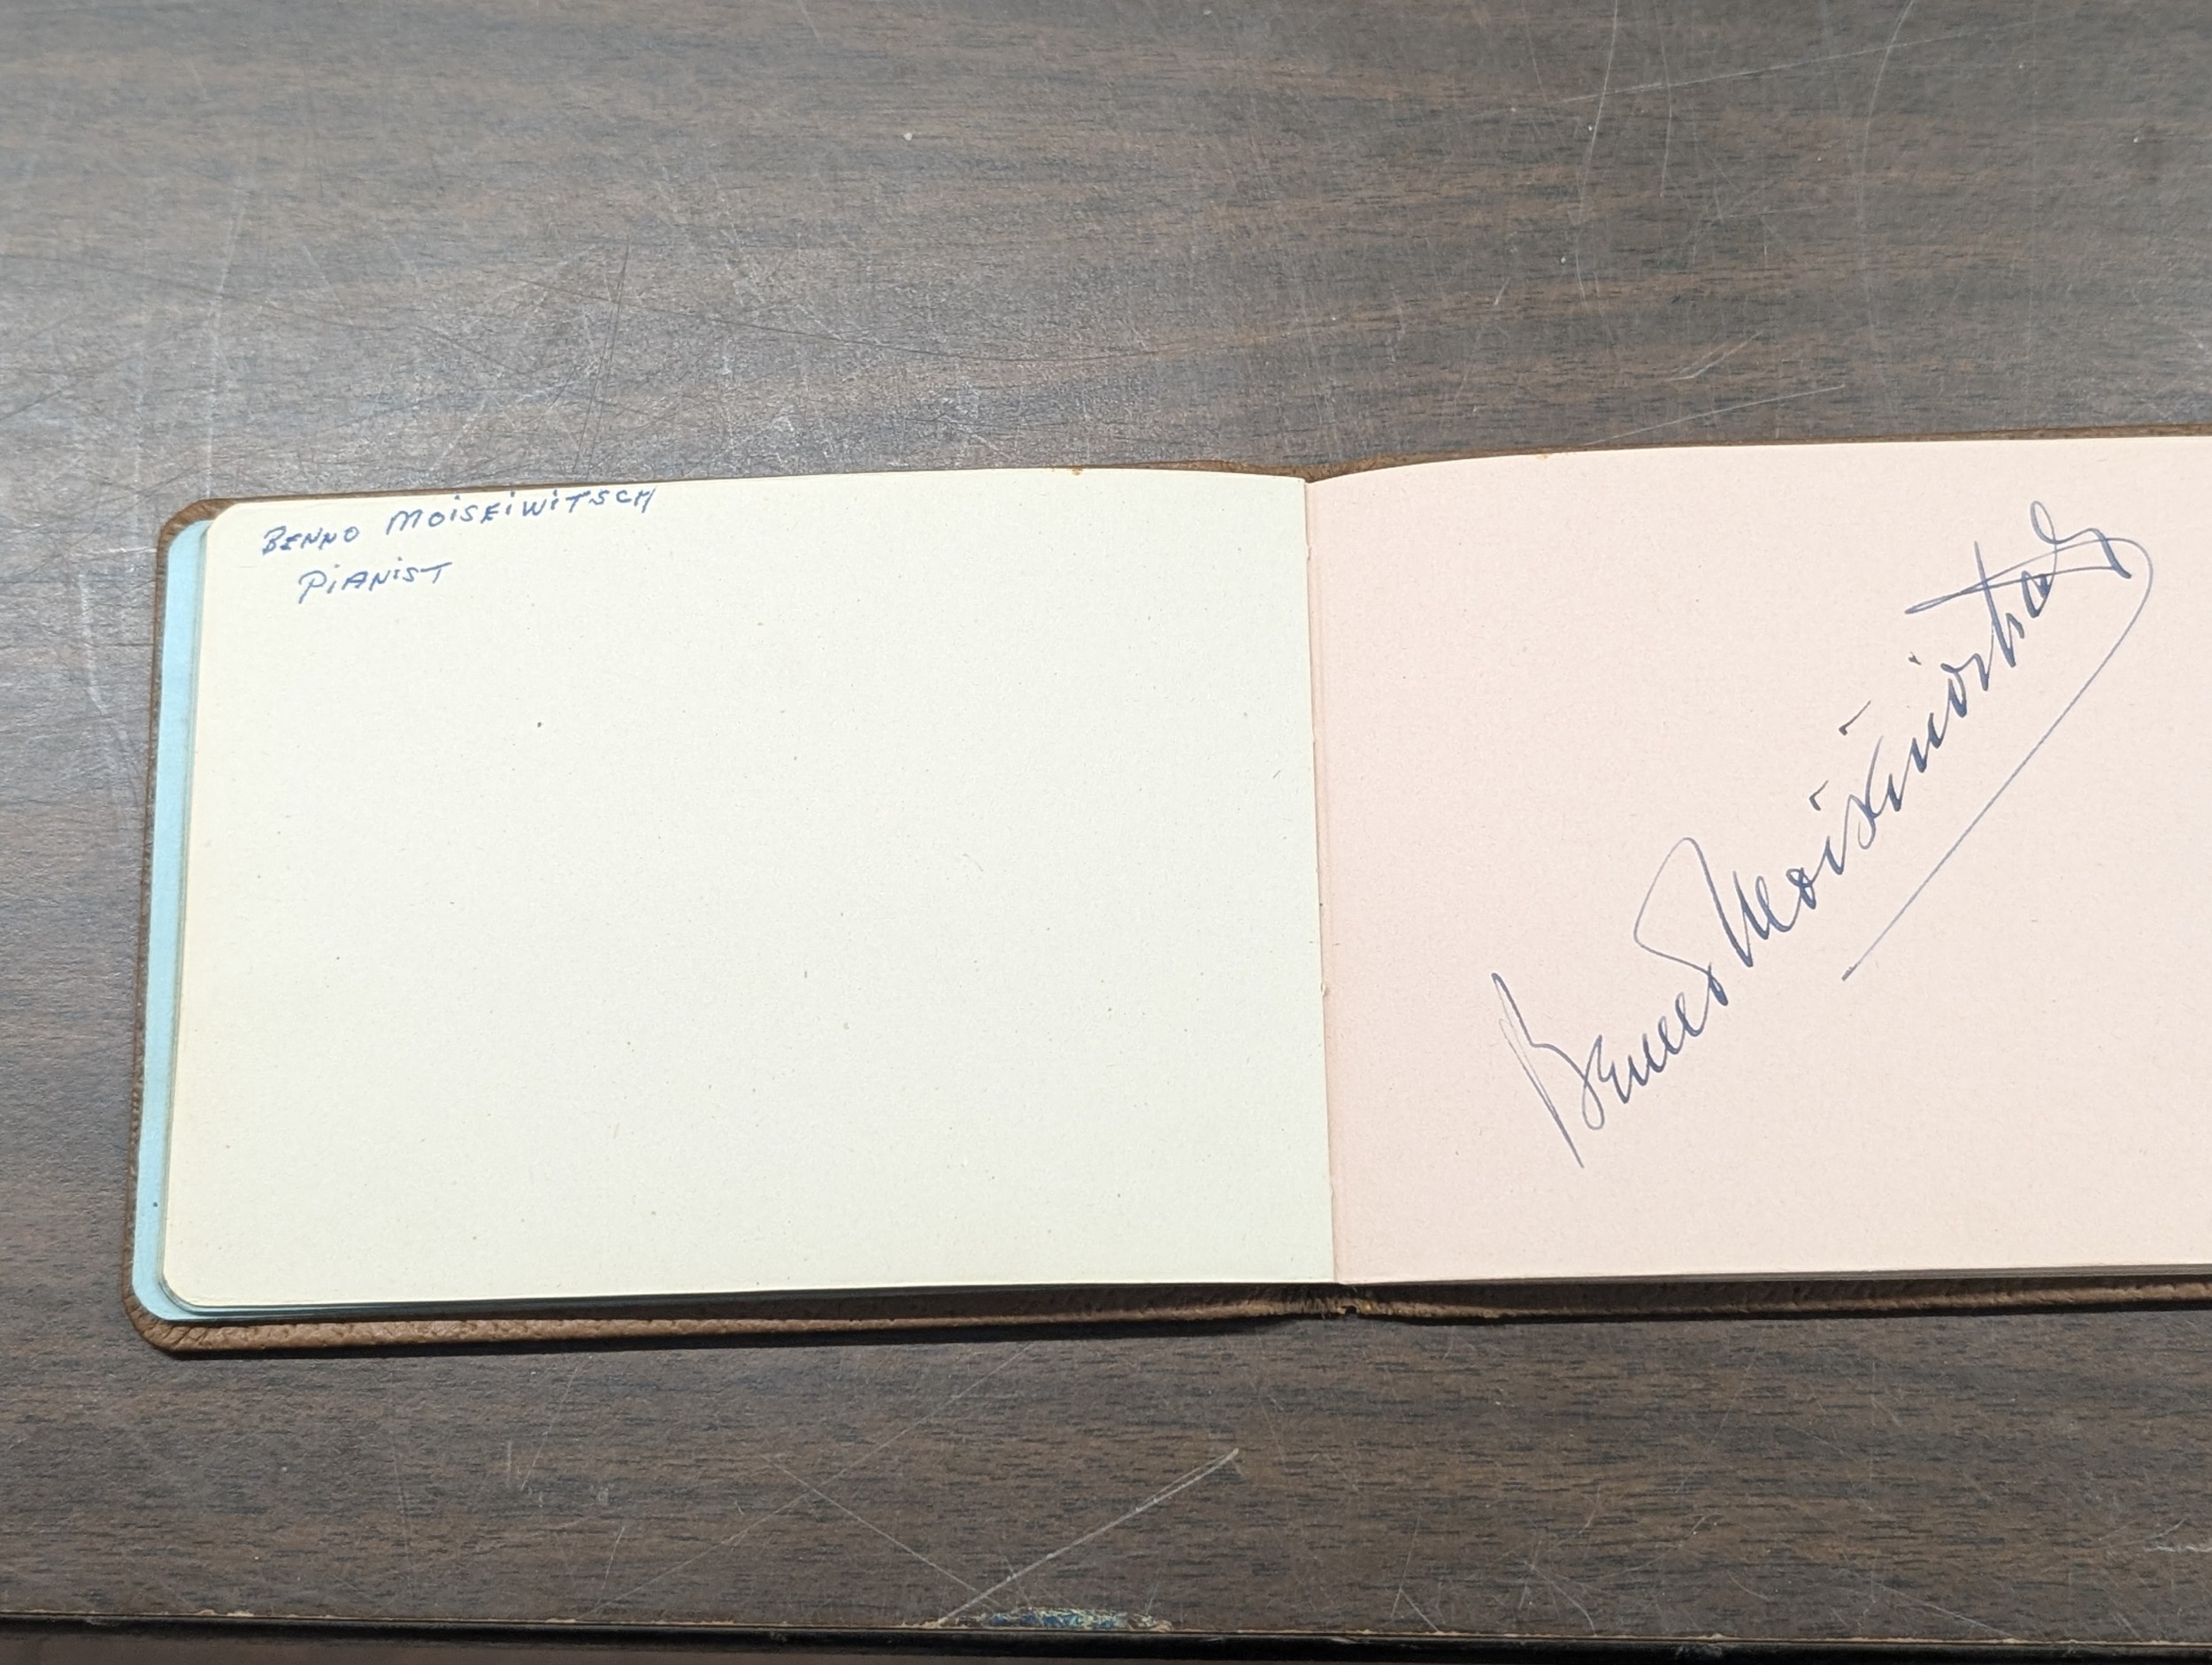 BENNO MOISEIWITSCH
PIANIST
Benno Moiseiwitsch